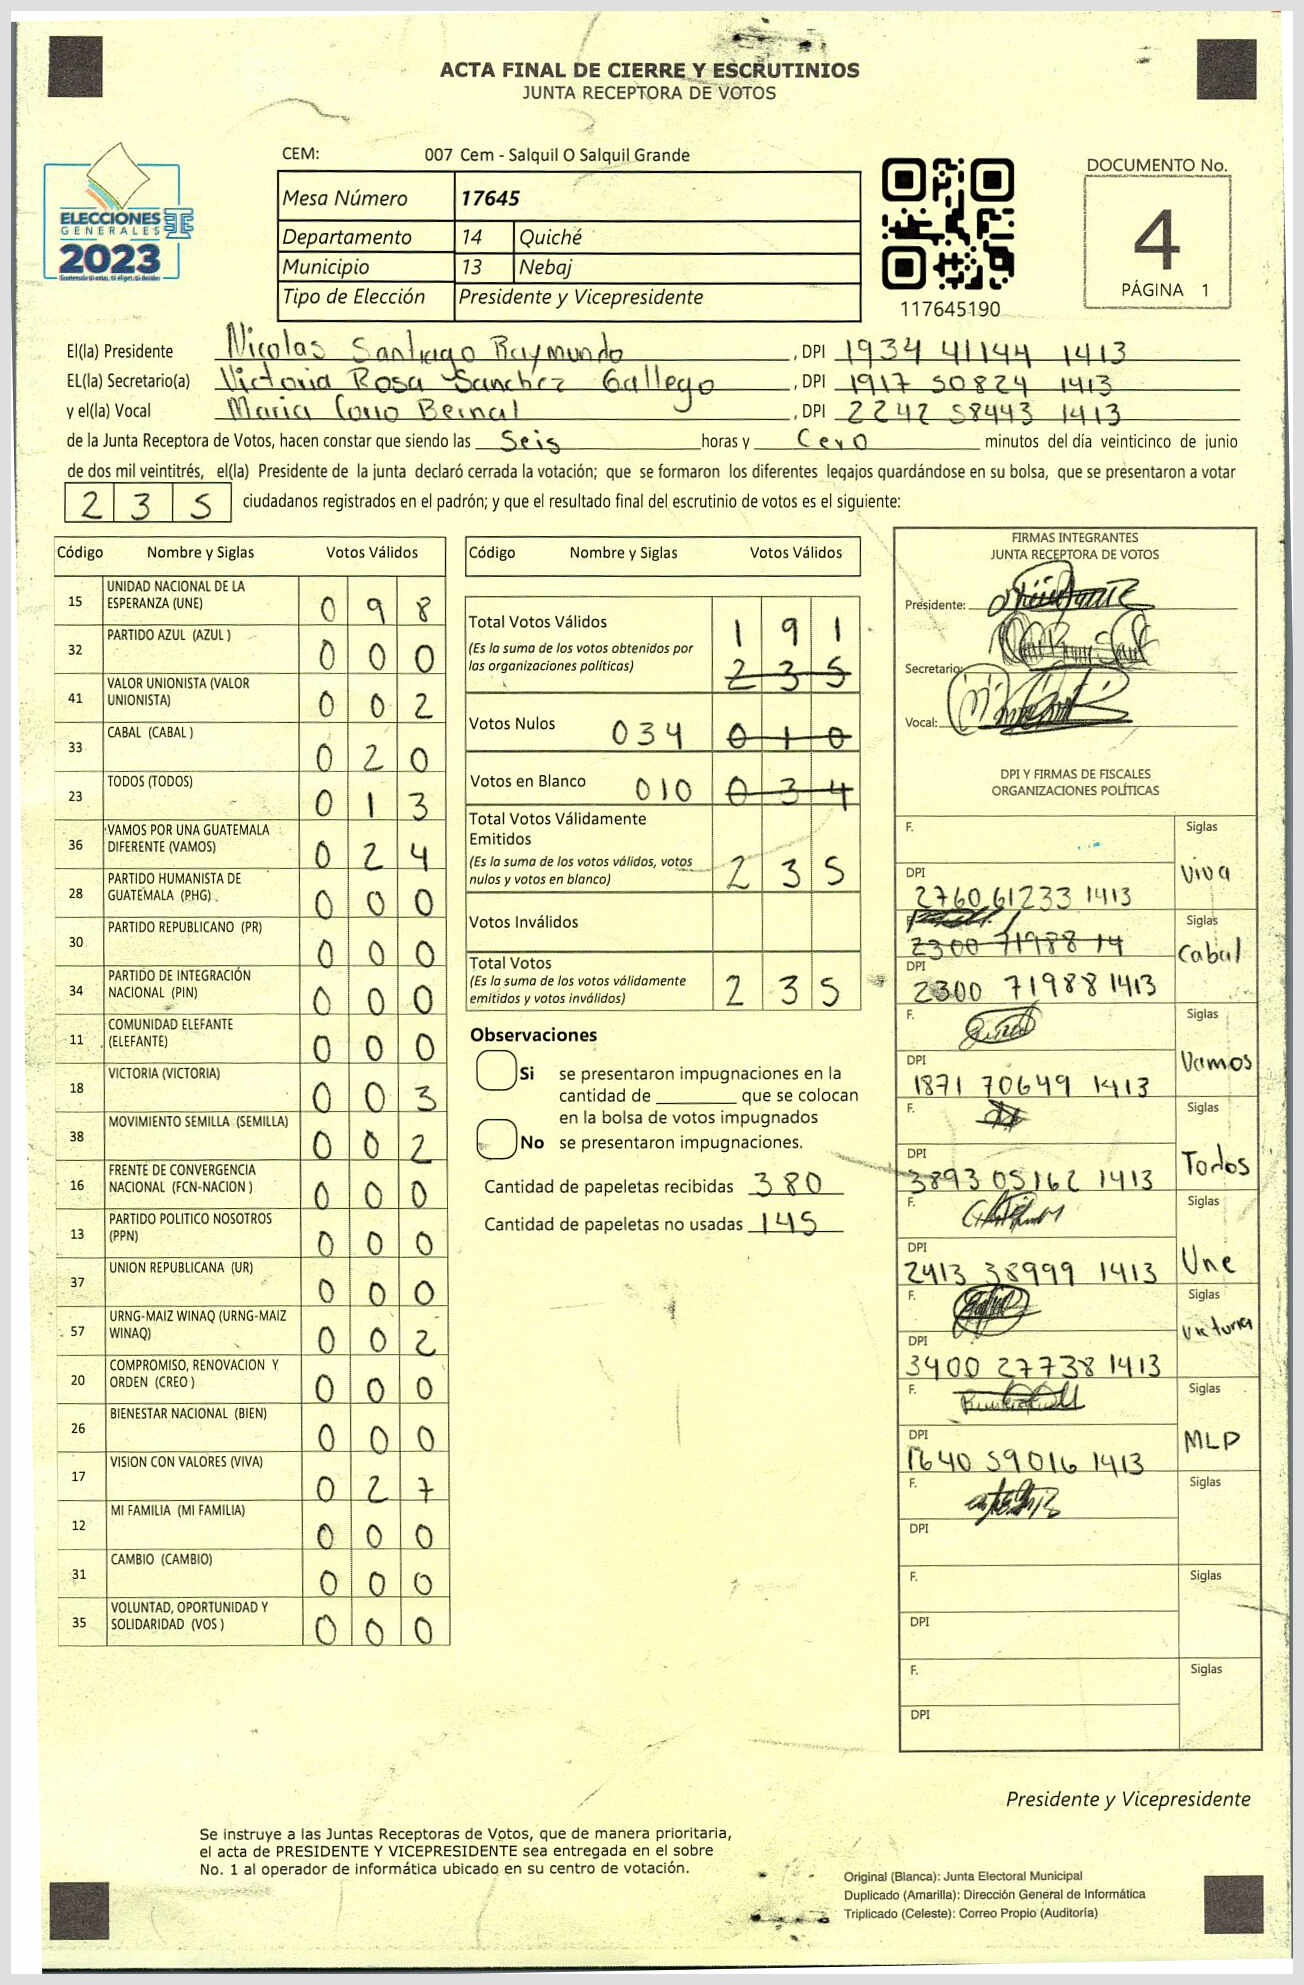 ACTA FINAL DE CIERRE Y ESCRUTINIOS
JUNTA RECEPTORA DE VOTOS
ELECCIONES
GENERALES
2023
CEM: 007 Cem - Salquil O Salquil Grande
Mesa Número 17645
Departamento 14 Quiché
Municipio 13 Nebaj
Tipo de Elección Presidente y Vicepresidente
117645190
DOCUMENTO No.
4
PÁGINA 1
El(la) Presidente Nicolas Santiago Raymundo, DPI 1934 41144 1413
EL(la) Secretario(a) Victoria Rosa Sanchez Gallego, DPI 1917 50824 1413
y el(la) Vocal Maria Bernal, DPI 2242 58443 1413
de la Junta Receptora de Votos, hacen constar que siendo las Seis horas y Cero minutos del día veinticinco de junio
de dos mil veintitrés, el(la) Presidente de la junta declaró cerrada la votación; que se formaron los diferentes legajos quardándose en su bolsa, que se presentaron a votar
235 ciudadanos registrados en el padrón; y que el resultado final del escrutinio de votos es el siguiente:
Código Nombre y Siglas Votos Válidos
15 UNIDAD NACIONAL DE LA ESPERANZA (UNE) 0 9 8
32 PARTIDO AZUL (AZUL ) 0 0 0
41 VALOR UNIONISTA (VALOR UNIONISTA) 0 0 2
33 CABAL (CABAL ) 0 2 0
23 TODOS (TODOS) 0 1 3
36 VAMOS POR UNA GUATEMALA DIFERENTE (VAMOS) 0 2 4
28 PARTIDO HUMANISTA DE GUATEMALA (PHG) 0 0 0
30 PARTIDO REPUBLICANO (PR) 0 0 0
34 PARTIDO DE INTEGRACIÓN NACIONAL (PIN) 0 0 0
11 COMUNIDAD ELEFANTE (ELEFANTE) 0 0 0
18 VICTORIA (VICTORIA) 0 0 3
38 MOVIMIENTO SEMILLA (SEMILLA) 0 0 2
16 FRENTE DE CONVERGENCIA NACIONAL (FCN-NACION ) 0 0 0
13 PARTIDO POLITICO NOSOTROS (PPN) 0 0 0
37 UNION REPUBLICANA (UR) 0 0 0
57 URNG-MAIZ WINAQ (URNG-MAIZ WINAQ) 0 0 2
20 COMPROMISO, RENOVACION Y ORDEN (CREO ) 0 0 0
26 BIENESTAR NACIONAL (BIEN) 0 0 0
17 VISION CON VALORES (VIVA) 0 2 7
12 MI FAMILIA (MI FAMILIA) 0 0 0
31 CAMBIO (CAMBIO) 0 0 0
35 VOLUNTAD, OPORTUNIDAD Y SOLIDARIDAD (VOS ) 0 0 0
Código Nombre y Siglas Votos Válidos
Total Votos Válidos 1 9 1
(Es la suma de los votos obtenidos por
las organizaciones políticas) 2 3 5
Votos Nulos 034 0 1 0
Votos en Blanco 010 0 3 4
Total Votos Válidamente
Emitidos
(Es la suma de los votos válidos, votos
nulos y votos en blanco) 2 3 5
Votos Inválidos
Total Votos
(Es la suma de los votos válidamente
emitidos y votos inválidos) 2 3 5
Observaciones
Si se presentaron impugnaciones en la
cantidad de ________ que se colocan
en la bolsa de votos impugnados
No se presentaron impugnaciones.
Cantidad de papeletas recibidas 380
Cantidad de papeletas no usadas 145
FIRMAS INTEGRANTES
JUNTA RECEPTORA DE VOTOS
Presidente:
Secretario:
Vocal:
DPI Y FIRMAS DE FISCALES
ORGANIZACIONES POLÍTICAS
F. Siglas
Viva
DPI
2760 61233 1413
F. Siglas
2300 71988 14
Cabal
DPI
2300 71988 1413
F. Siglas
Vamos
DPI
1871 70649 1413
F. Siglas
Todos
DPI
3893 05162 1413
F. Siglas
Une
DPI
2413 38999 1413
F. Siglas
Victoria
DPI
3400 27738 1413
F. Siglas
MLP
DPI
1640 59016 1413
F. Siglas
DPI
F. Siglas
DPI
F. Siglas
DPI
Presidente y Vicepresidente
Se instruye a las Juntas Receptoras de Votos, que de manera prioritaria,
el acta de PRESIDENTE Y VICEPRESIDENTE sea entregada en el sobre
No. 1 al operador de informática ubicado en su centro de votación.
Original (Blanca): Junta Electoral Municipal
Duplicado (Amarilla): Dirección General de Informática
Triplicado (Celeste): Correo Propio (Auditoría)